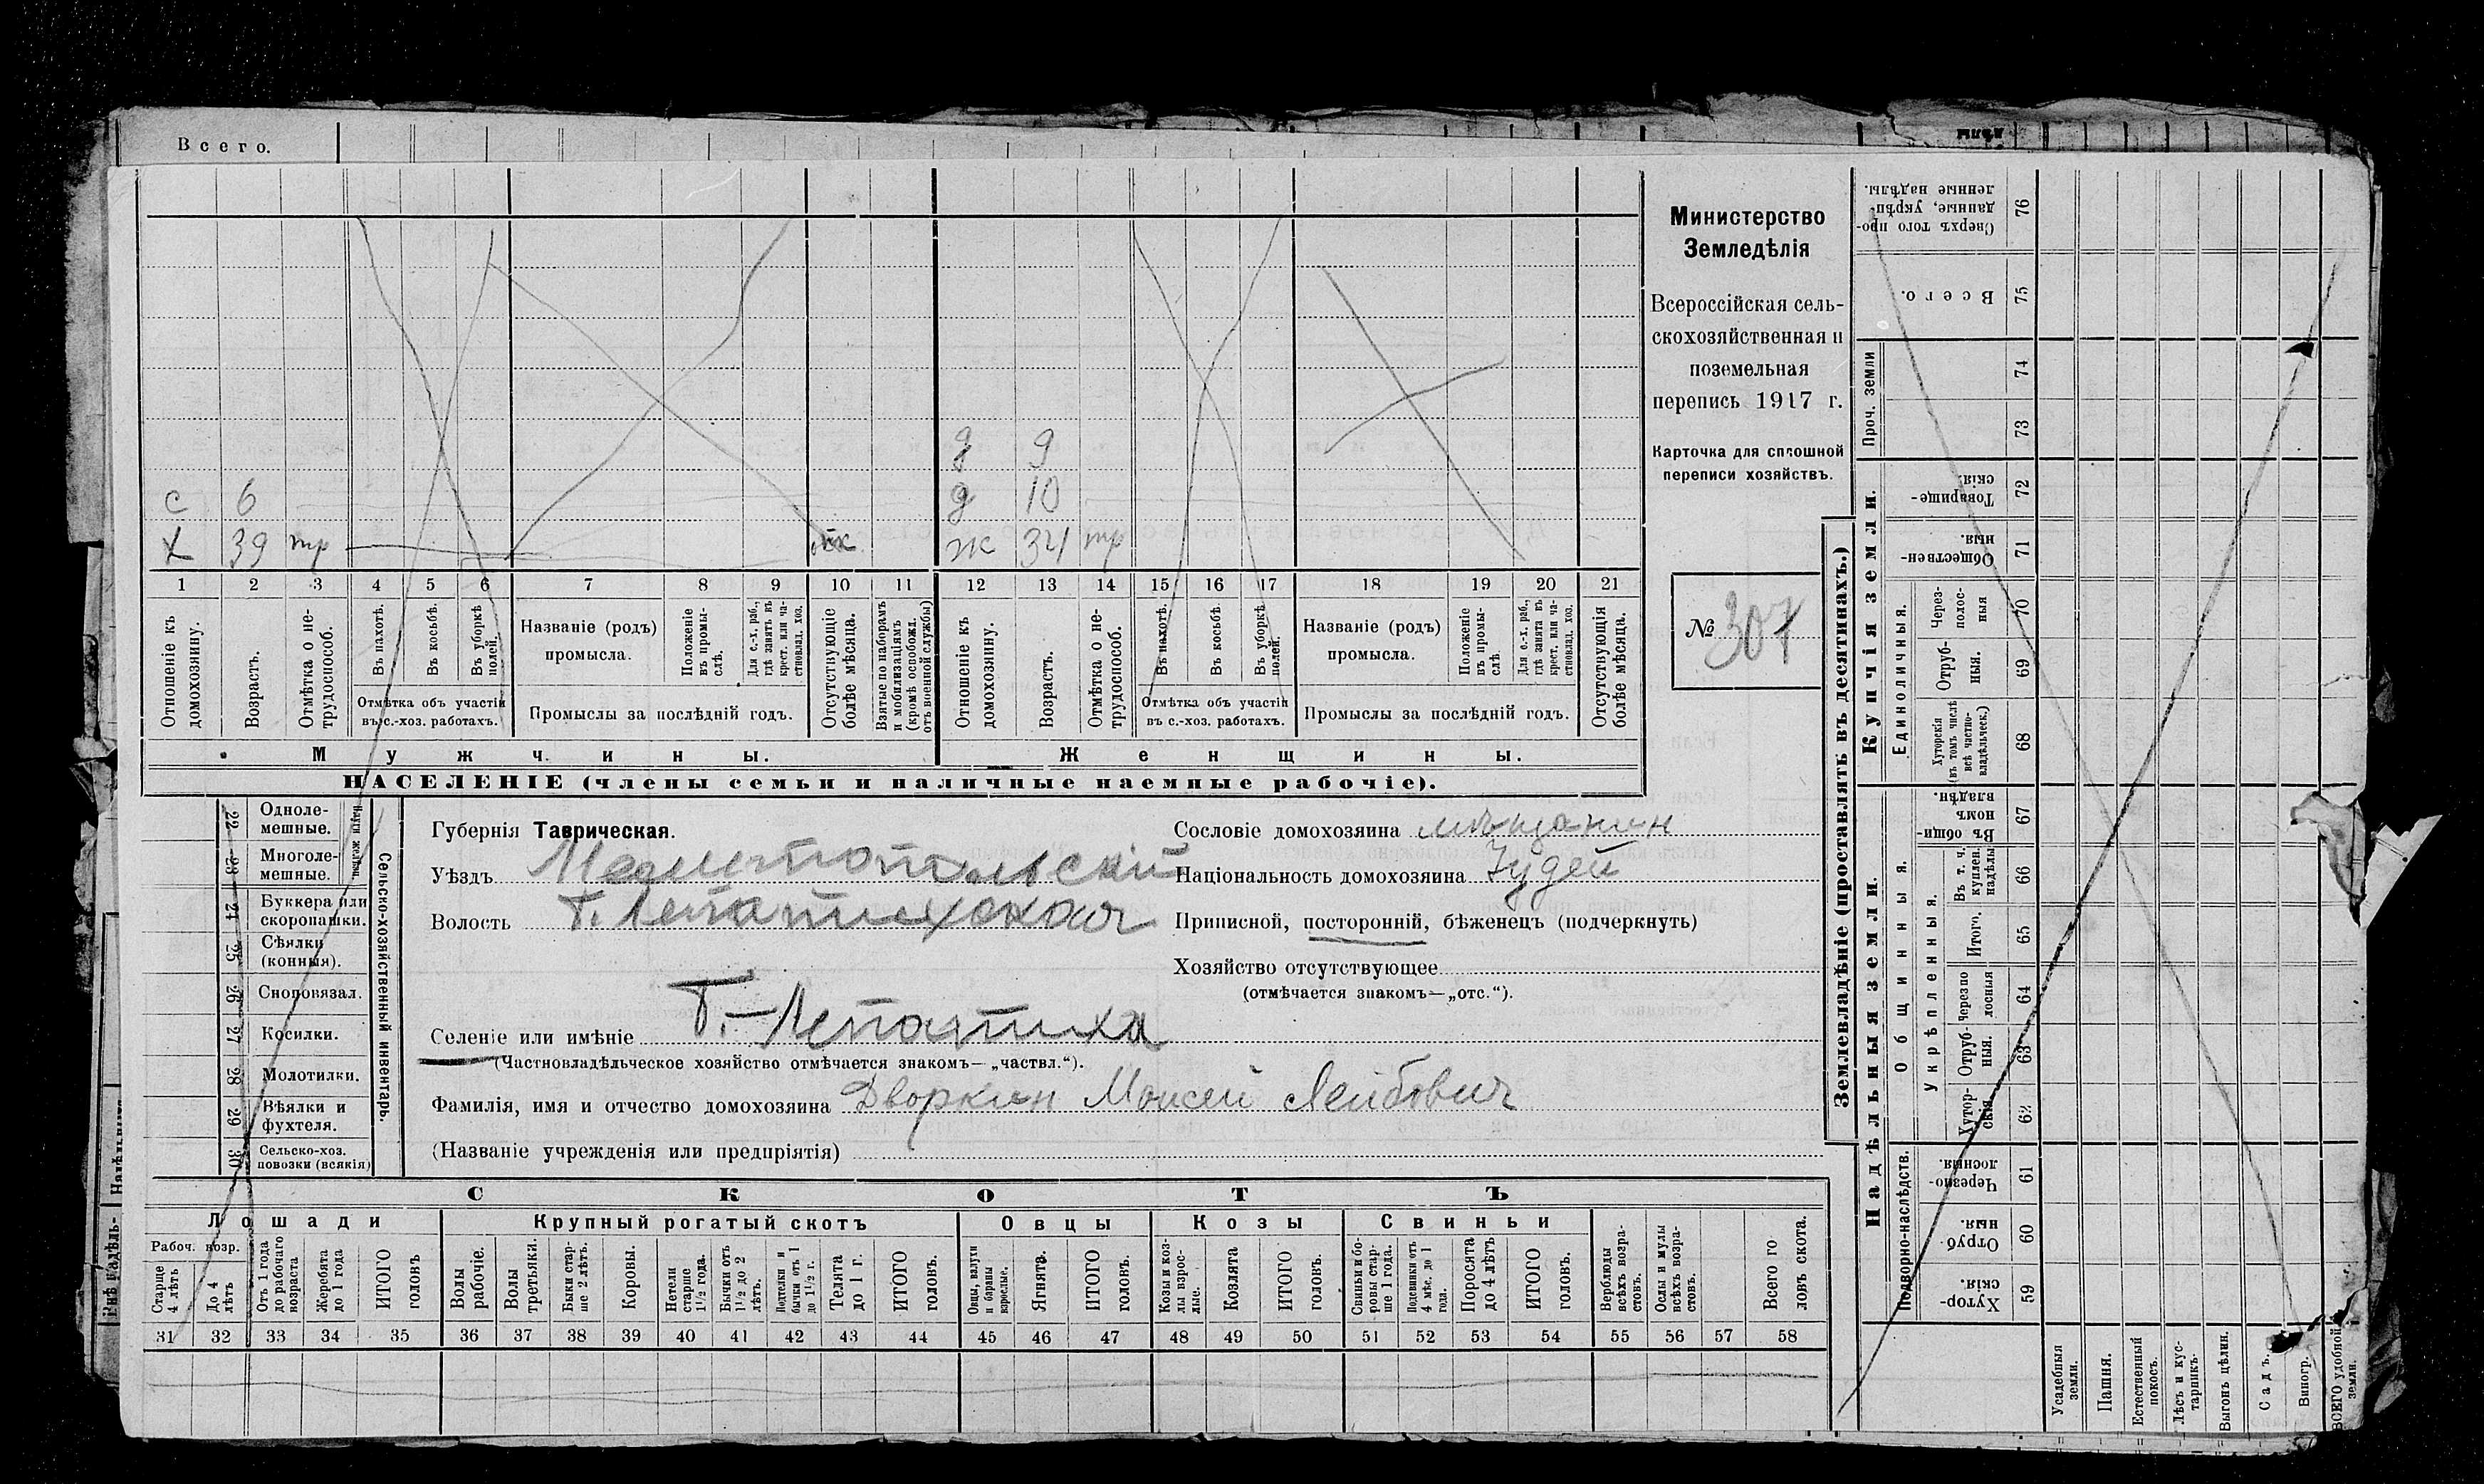 Всего.
с 6
х 39 тр
д 9
д 10
ж 34 тр
1 2 3 4 5 6 7 8 9 10 11 12 13 14 15 16 17 18 19 20 21
Отношеніе къ домохозяину.
Возрастъ.
Отмѣтка о нетрудоспособ.
Въ пахотѣ.
Въ косьбѣ.
Въ уборкѣ полей.
Отмѣтка объ участіи
въ с.-хоз. работахъ.
Названіе (родъ)
промысла.
Положеніе въ промыслѣ.
Для с.-х. раб., гдѣ занятъ въ крест. или частновлад. хоз.
Промыслы за послѣдній годъ.
Отсутствующіе болѣе мѣсяца.
Взятые по наборамъ и мобилизаціямъ (кромѣ освобожд. отъ военной службы)
Отношеніе къ домохозяину.
Возрастъ.
Отмѣтка о нетрудоспособ.
Въ пахотѣ.
Въ косьбѣ.
Въ уборкѣ полей.
Отмѣтка объ участіи
въ с.-хоз. работахъ.
Названіе (родъ)
промысла.
Положеніе въ промыслѣ.
Для с.-х. раб., гдѣ занята въ крест. или частновлад. хоз.
Промыслы за послѣдній годъ.
Отсутствующія болѣе мѣсяца.
Мужчины.
Женщины.
НАСЕЛЕНІЕ (члены семьи и наличные наемные рабочіе).
Министерство
Земледѣлія
Всероссійская сель-
скохозяйственная и
поземельная
перепись 1917 г.
Карточка для сплошной
переписи хозяйствъ.
№ 307
22 Одноле-
мешные.
23 Многоле-
мешные.
24 Буккера или
скоропашки.
25 Сѣялки
(конныя).
26 Сноповязал.
27 Косилки.
28 Молотилки.
29 Вѣялки и
фухтеля.
30 Сельско-хоз.
повозки (всякія)
Сельско-хозяйственный инвентарь.
Губернія Таврическая.
Уѣздъ Мелитопольскій
Волость Г. Лепатихская
Селеніе или имѣніе Г.-Лепатиха
(Частновладѣльческое хозяйство отмѣчается знакомъ—„частвл.“).
Фамилія, имя и отчество домохозяина Дворкин Моисей Лейбович
(Названіе учрежденія или предпріятія)
Сословіе домохозяина мѣщанин
Національность домохозяина Іудей
Приписной, посторонній, бѣженецъ (подчеркнуть)
Хозяйство отсутствующее
(отмѣчается знакомъ—„отс.“).
СКОТЪ
Лошади
Крупный рогатый скотъ
Овцы
Козы
Свиньи
Рабоч. возр.
Старше 4 лѣтъ
До 4 лѣтъ
Отъ 1 года до рабочаго возраста
Жеребята до 1 года
ИТОГО головъ
Волы рабочіе.
Волы третьяки.
Быки старше 2 лѣтъ.
Коровы.
Нетели старше 1½ года.
Бычки отъ 1½ до 2 лѣтъ.
Подтелки и бычки отъ 1 до 1½ г.
Телята до 1 г.
ИТОГО головъ.
Овцы, валухи и бараны взрослые.
Ягнята.
ИТОГО головъ.
Козы и козлы взрослые.
Козлята
ИТОГО головъ.
Свиньи и боровы старше 1 года.
Подсвинки отъ 4 мѣс. до 1 года.
Поросята до 4 лѣтъ
ИТОГО головъ.
Верблюды всѣхъ возрастовъ.
Ослы и мулы всѣхъ возрастовъ.
Всего головъ скота.
31 32 33 34 35 36 37 38 39 40 41 42 43 44 45 46 47 48 49 50 51 52 53 54 55 56 57 58
Землевладѣніе (проставлять въ десятинахъ.)
Купчія земли.
Надѣльныя земли.
Сверхъ того проданные, укрѣпленные надѣлы. 76
Всего. 75
Проч. земли 74
73
Товарищескія. 72
Общественныя. 71
Единоличныя.
Черезполосныя 70
Отрубныя. 69
Хуторскія (въ томъ числѣ всѣ частновладѣльческ.) 68
Общинныя.
Въ общинномъ владѣн. 67
Укрѣпленныя.
Въ т. ч. куплен. надѣлы 66
Итого. 65
Черезполосныя 64
Отрубныя. 63
Хуторскія. 62
Подворно-наслѣдств.
Черезполосныя. 61
Отрубныя. 60
Хуторскія. 59
Усадебныя земли.
Пашня.
Естественный покосъ.
Лѣсъ и кустарникъ.
Выгонъ цѣлин.
Садъ.
Виногр.
ВСЕГО удобной земли.